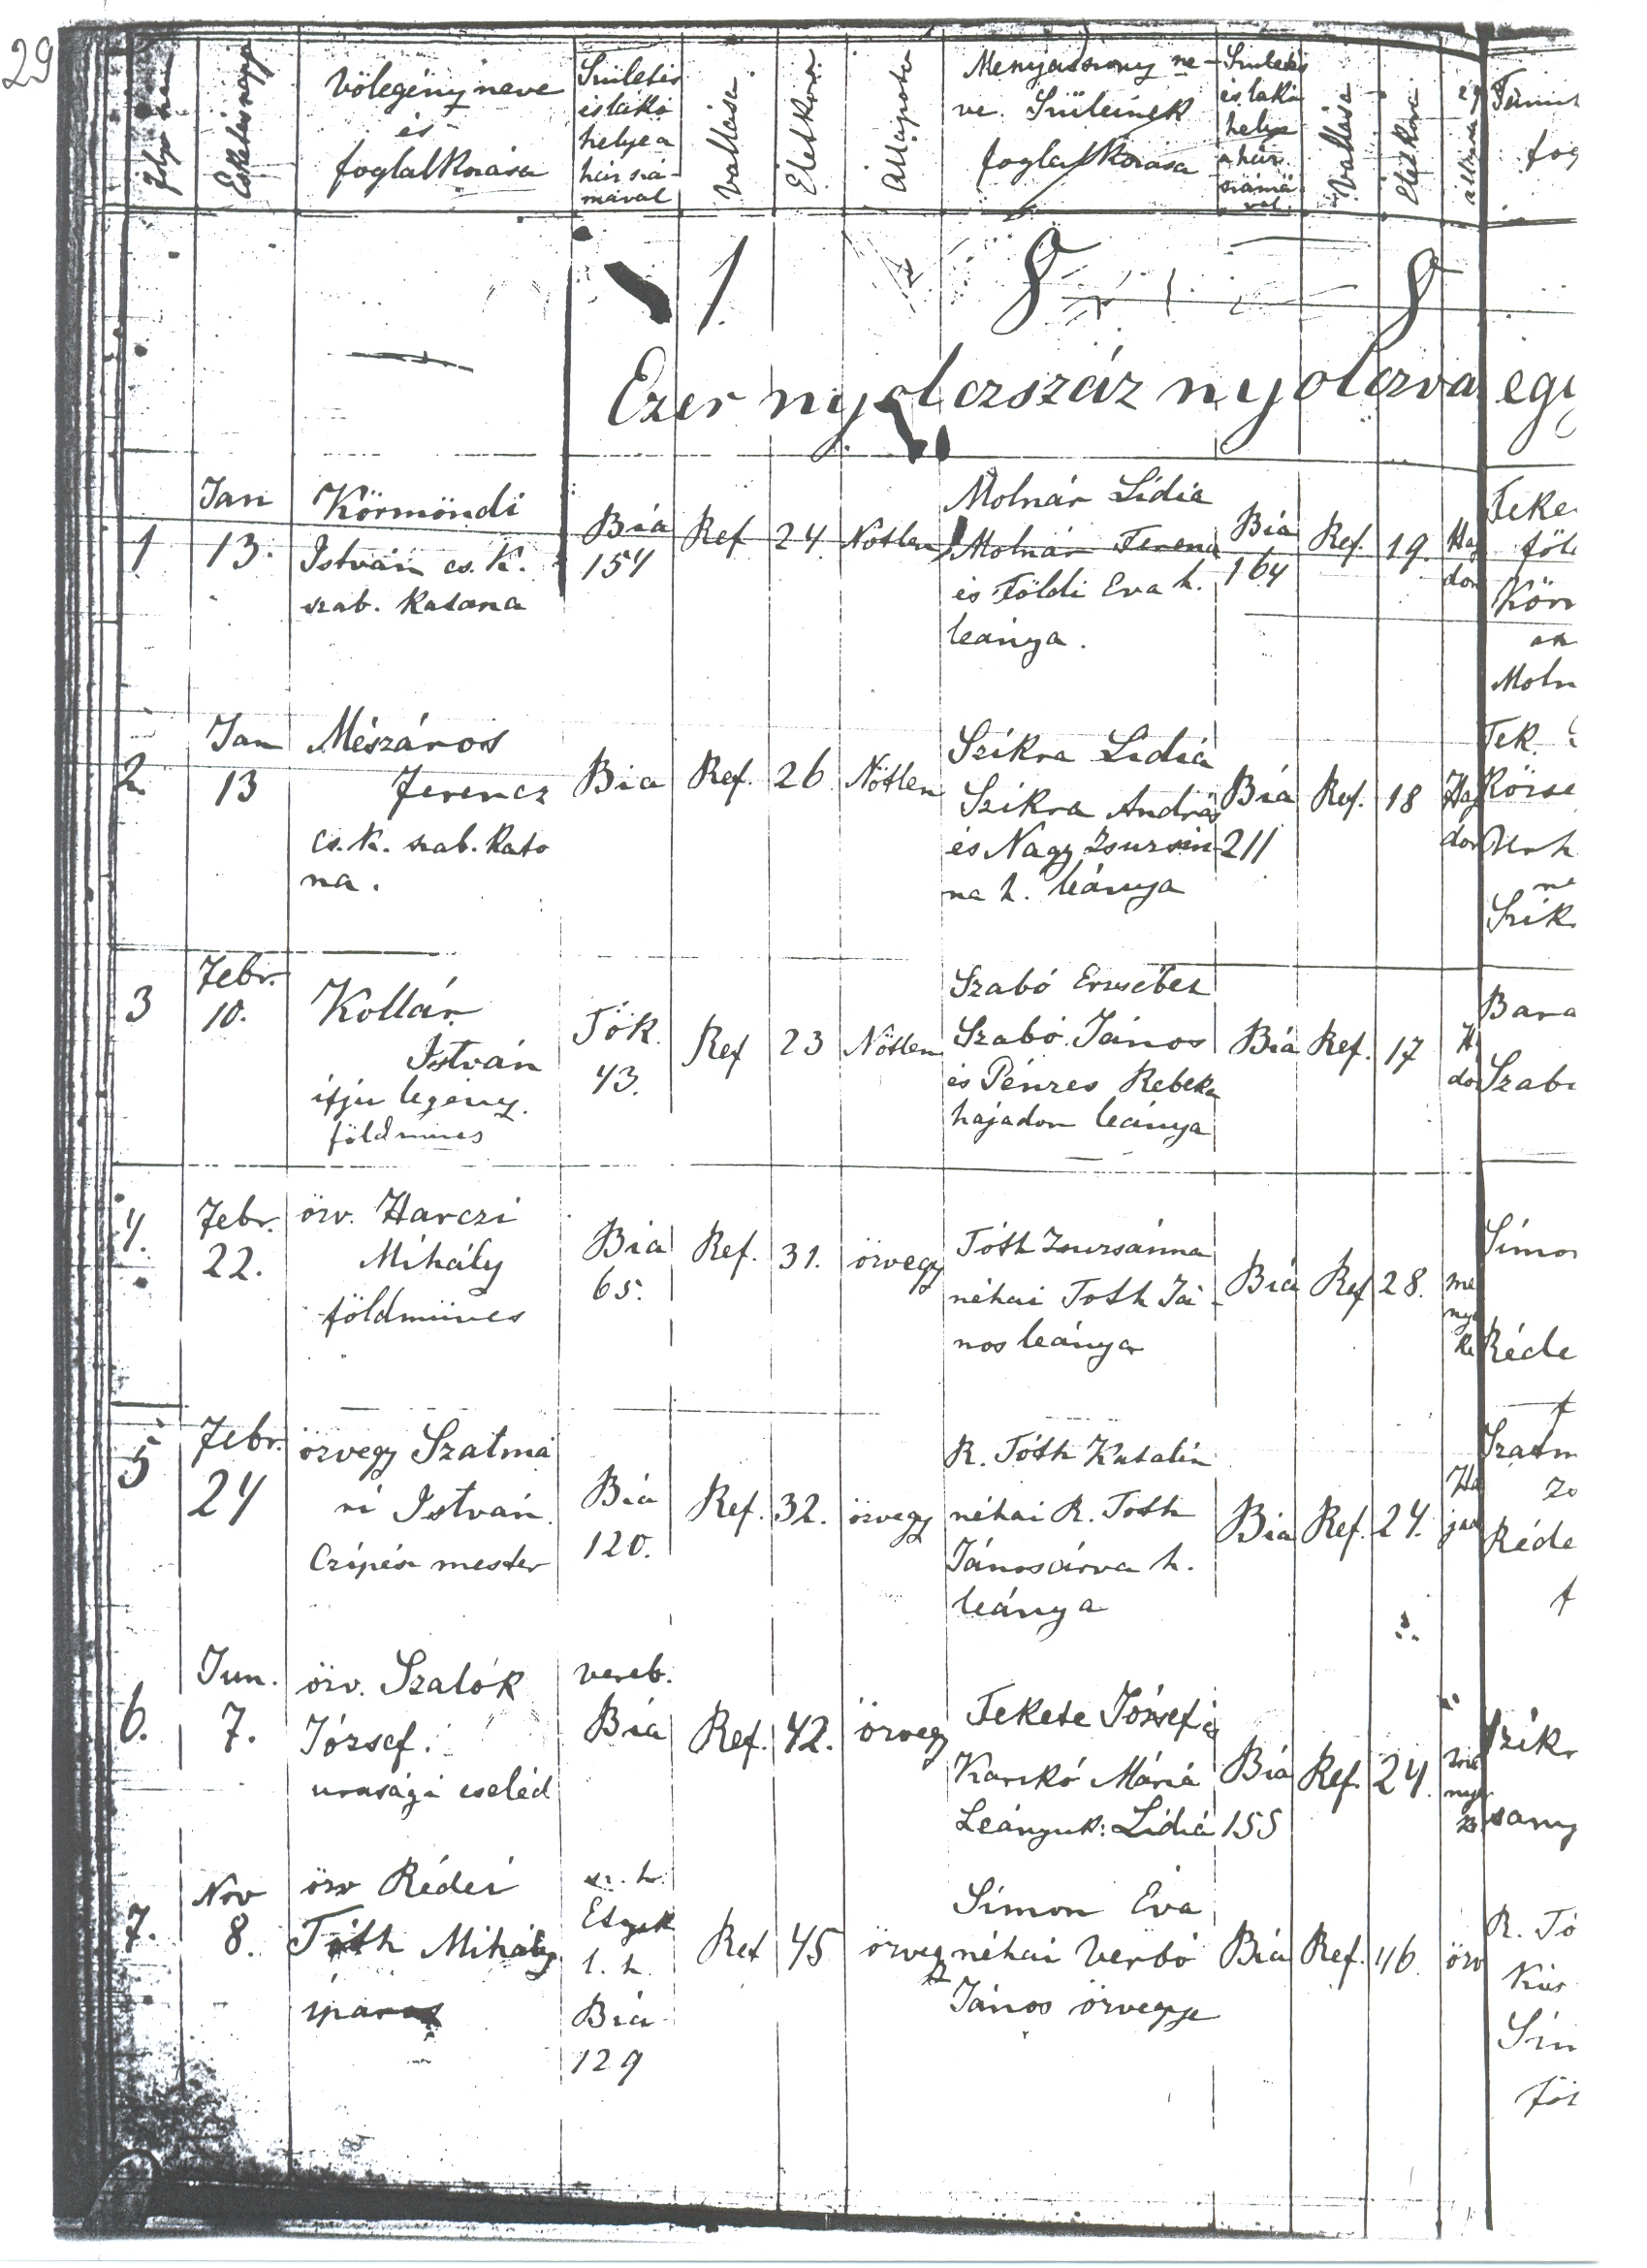 29
Eskelés napja
Völegény neve
és
foglalkozása
Születés
és lakó
helye a
ház szá-
mával
Vallása.
Életkora.
Állapota
Menyasszony ne-
ve. Szüleinek
foglalkozása
Születés
és lakó
helye
a ház
számá
val.
Vallása
Életkora
1 8 8
Ezer nyolczszáz nyolczva egy
1
Jan
13.
Körmöndi
István cs. K.
szab. katona
Bia
154
Ref
24.
Nőtlen
Molnár Lídia
Molnár Ferencz
és Földi Eva h.
leánya.
Bia
164
Ref.
19.
Haj
don
Feke
föl
Kör
Moln
2
Jan
13
Mészáros
Ferencz
cs. K. szab. kato
na.
Bia
Ref.
26
Nőtlen
Szikra Lidia
Szikra András
és Nagy Zsuzsán-
na h. leánya
Bia
211
Ref.
18
Haj
don
Tek.
Körse
ne
Szik
3
Febr.
10.
Kollár
István
ifju legény.
földmives
Tök.
43.
Ref
23
Nőtlen
Szabó Erzsébet
Szabó János
és Pénzes Rebeka
hajadon leánya
Bia
Ref.
17
H.
don
Bara
Szab
4.
Febr.
22.
özv. Harczi
Mihály
földmüves
Bia
65.
Ref.
31.
özvegy
Tóth Zsuzsánna
néhai Toth Já-
nos leánya
Bia
Ref
28.
Simon
Réde
f
5
Febr.
24
özvegy Szatmá
ri István.
Czipész mester
Bia
120.
Ref.
32.
özvegy
R. Tóth Katalin
néhai R. Toth
János árva h.
leánya
Bia
Ref.
24.
Ha
jad
Szatm
Réde
f
6.
Jun.
7.
özv. Szalók
József.
urasági cseléd
vereb.
Bia
Ref.
42.
özvegy
Fekete József és
Karikó Mária
Leányuk: Lídia
Bia
155
Ref.
24.
Szikr
7.
Nov
8.
özv Rédei
Tóth Mihály
iparos
sz. h.
l. h.
Bia
129
Ref
45
özvegy
Simon Eva
néhai Verbó
János özvegye
Bia
Ref.
46.
özv
R. Tó
Sim
föl